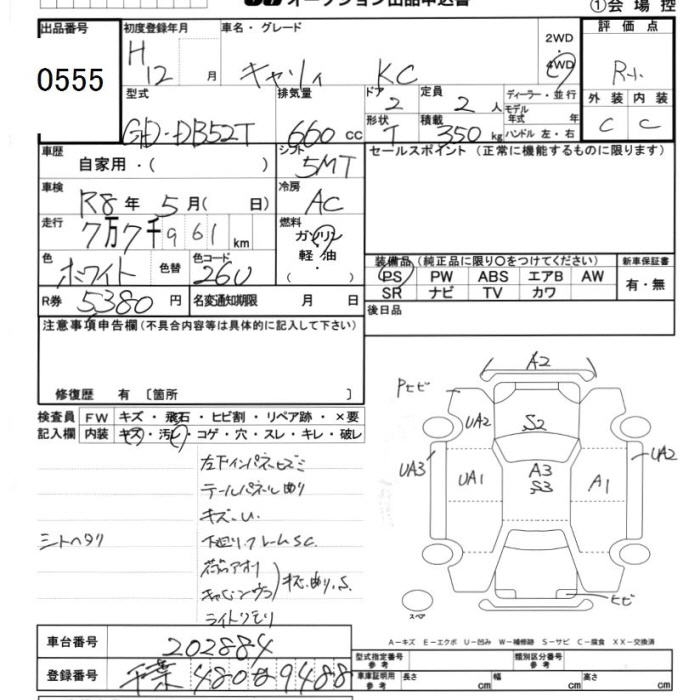 オークション出品申込書
①会場控
出品番号
0555
初度登録年月
H 12 月
車名・グレード
キャリィ KC
2WD
・
4WD
評価点
R-1
外装 内装
C C
型式
GD-DB52T
排気量
660 cc
ドア 2
形状 T
定員 2 人
積載 350 kg
ディーラー・並行
モデル
年式 年
ハンドル 左・右
車歴
自家用・( )
シフト
5MT
セールスポイント(正常に機能するものに限ります)
車検
R8 年 5 月( 日)
冷房
AC
走行
7万7千961 km
燃料
ガソリン
軽・油
( ・ )
色
ホワイト
色替
色コード
26U
装備品(純正品に限り○をつけてください)
PS PW ABS エアB AW
SR ナビ TV カワ
新車保証書
有・無
R券 5380 円
名変通知期限 月 日
後日品
注意事項申告欄(不具合内容等は具体的に記入して下さい)
修復歴 有〔箇所 〕
検査員
記入欄
FW キズ・飛石・ヒビ割・リペア跡・×要
内装 キズ・汚レ・コゲ・穴・スレ・キレ・破レ
左下インパネヒズミ
テールパネルめり
キズ・U.
シートヘタリ
下廻り・フレームSC.
荷台アオリ
キャビンウラ
キズ・めり.S.
ライトクモリ
A2
Pヒビ
UA2
S2
UA3
UA1
A3
S3
A1
UA2
ヒビ
スペア
A-キズ E-エクボ U-凹み W-補修跡 S-サビ C-腐食 XX-交換済
車台番号
202884
登録番号
千葉 480 あ 9488
型式指定番号
参考
類別区分番号
参考
車庫証明用
参考
長さ cm
幅 cm
高さ cm